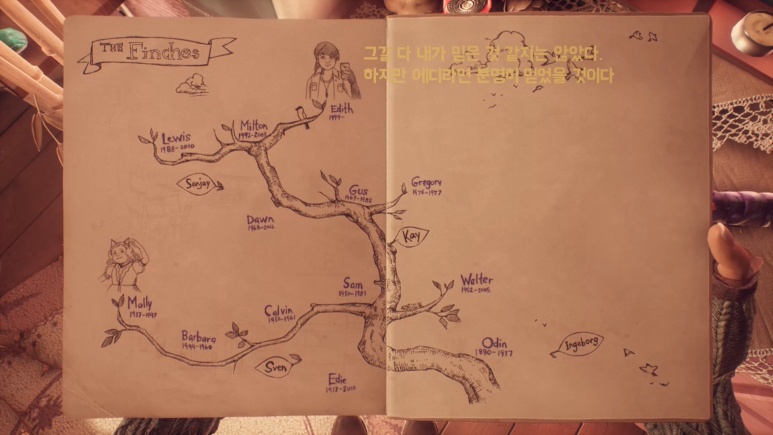 THE Finches
그걸 다 내가 믿은 것 같지는 않았다.
하지만 에디라면 분명히 믿었을 것이다
Edith
1999-
Milton
1992-2003
Lewis
1988-2010
Sanjay
Gus
1969-1982
Gregory
1976-1977
Dawn
1968-2016
Kay
Sam
1950-1983
Walter
1952-2005
Molly
1937-1947
Calvin
1950-1961
Barbara
1944-1960
Sven
Odin
1880-1937
Ingeborg
Edie
1917-2010